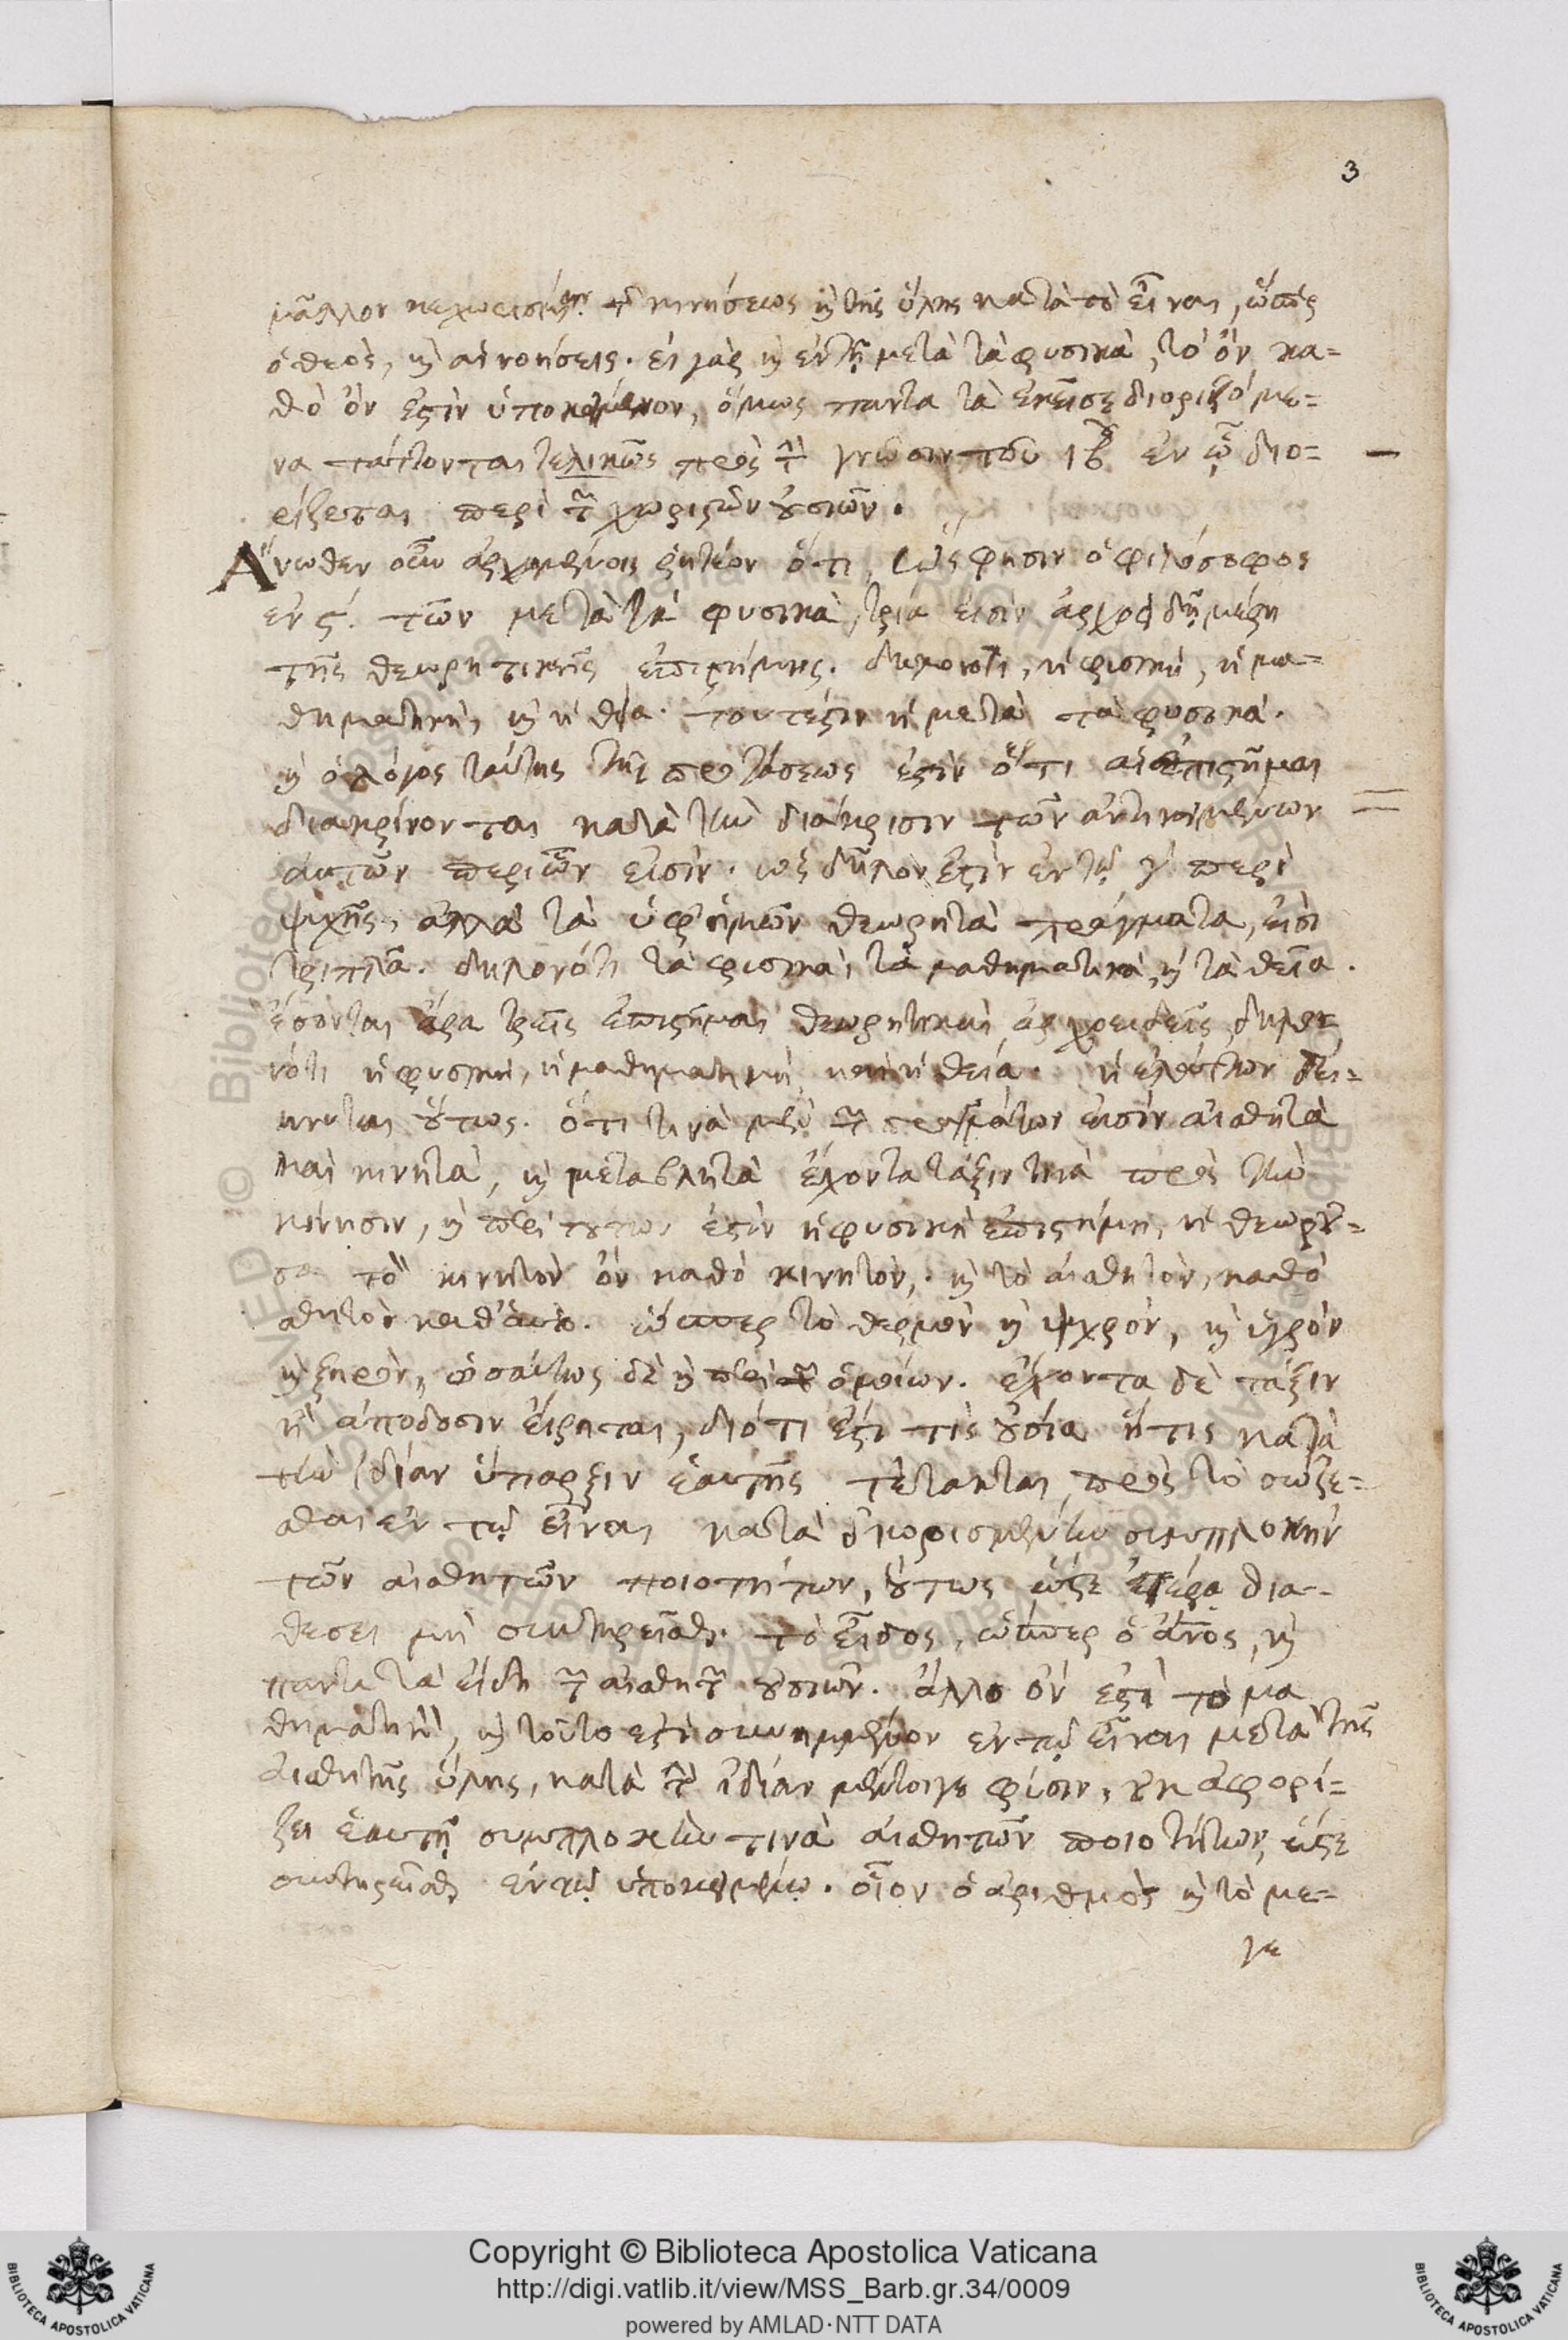 3
μᾶλλον κεχωρισμένην τῆς κινήσεως καὶ τῆς ὕλης κατὰ τὸ εἶναι, ὥσπερ
ὁ θεὸς, καὶ αἱ νοήσεις. εἰ γὰρ καὶ ἐν τῇ μετὰ τὰ φυσικὰ, τὸ ὂν κα=
θὸ ὂν ἐστὶν ὑποκείμενον, ὅμως παντα τὰ ἐκεῖσε διοριζόμε=
να τάττονται τελικῶς πρὸς τὴν γνῶσιν τοῦ ιβ ἐν ᾧ διο=
ρίζεται περὶ τῶν χωριστῶν οὐσιῶν.
Ἄνωθεν οὖν ἀρχομένοις ῥητέον ὅτι, ὡς φησιν ὁ φιλόσοφος
ἐν ϛ. τῶν μετὰ τὰ φυσικὰ, τρία εἰσὶν ἀρχοειδῆ μέρη
τῆς θεωρητικῆς ἐπιστήμης. δηλονότι, ἡ φισικὴ, ἡ μα=
θηματική, καὶ ἡ θεία. τουτέστιν ἡ μετὰ τὰ φυσικά.
καὶ ὁ λόγος ταύτης τῆς προτάσεως ἐστὶν ὅτι αἱ ἐπιστῆμαι
διακρίνονται κατὰ τὴν διάκρισιν τῶν ἀντικειμένων
αυτῶν περὶ ὧν εἰσίν. ὡς δῆλον ἐστὶν ἐν τῷ γ περὶ
ψυχῆς, ἀλλὰ τὰ ὑφ' ἡμῶν θεωρητὰ πράγματα, εἰσὶ
τριπλᾶ. δηλονότι τὰ φισικὰ, τὰ μαθηματικὰ, καὶ τὰ θεῖα.
ἔσονται ἄρα τρεῖς ἐπιστήμαι θεωρητικαὶ ἀρχοειδεῖς, δηλο
νότι ἡ φυσικὴ, ἡ μαθηματικὴ, καὶ ἡ θεία. ἡ ἐλάττων δεί=
κνυται οὕτως. ὅτι τινὰ μὲν τῶν πραγμάτων εἰσὶν αἰσθητὰ
καὶ κινητὰ, καὶ μεταβλητὰ ἔχοντα τάξιν τινὰ πρὸς τὴν
κίνησιν, καὶ περὶ τούτων ἐστὶν ἡ φυσικὴ ἐπιστήμη, ἡ θεωροῦ=
σα τὸ κινητὸν ὂν καθὸ κινητὸν, καὶ τὸ αἰσθητὸν, καθὸ
αἰσθητὸν καθ' αὑτὸ. ὥσπερ τὸ θερμὸν καὶ ψυχρόν, καὶ ὑγρὸν
καὶ ξηρὸν, ὡσαύτως δὲ καὶ περὶ τῶν ὁμοίων. ἔχοντα δὲ τάξιν
ἢ ἀπόδοσιν εἴρηται, διότι ἐστὶ τὶς οὐσία ἥτις κατὰ
τὴν ἰδίαν ὕπαρξιν ἑαυτῆς τέτακται πρὸς τὸ σώζε=
σθαι ἐν τῷ εἶναι κατὰ συμπλοκὴν
τῶν αἰσθητῶν ποιοτήτων, οὕτως ὥστε ἑτέρᾳ δια=
θεσει μὴ συντηρεῖσθαι τὸ εἶδος, ὥσπερ ὁ ἄνος, καὶ
παντα τὰ εἴδη τῶν αἰσθητῶν οὐσιῶν. ἄλλο ὂν ἐστὶ τὸ μα
θηματικὸν, καὶ τοῦτο ἐστὶ συνημμένον ἐν τῷ εἶναι μετὰ τῆς
αἰσθητῆς ὕλης, κατὰ τὴν ἰδίαν μέντοιγε φύσιν, οὐκ ἀφορί=
ζει ἑαυτῇ συμπλοκὴν τινὰ αἰσθητῶν ποιοτήτων, ὥστε
συντηρεῖσθαι ἐν τῷ ὑποκειμένῳ. οἷον ὁ ἀριθμὸς καὶ τὸ με=
γε
Copyright © Biblioteca Apostolica Vaticana
http://digi.vatlib.it/view/MSS_Barb.gr.34/0009
powered by AMLAD·NTT DATA